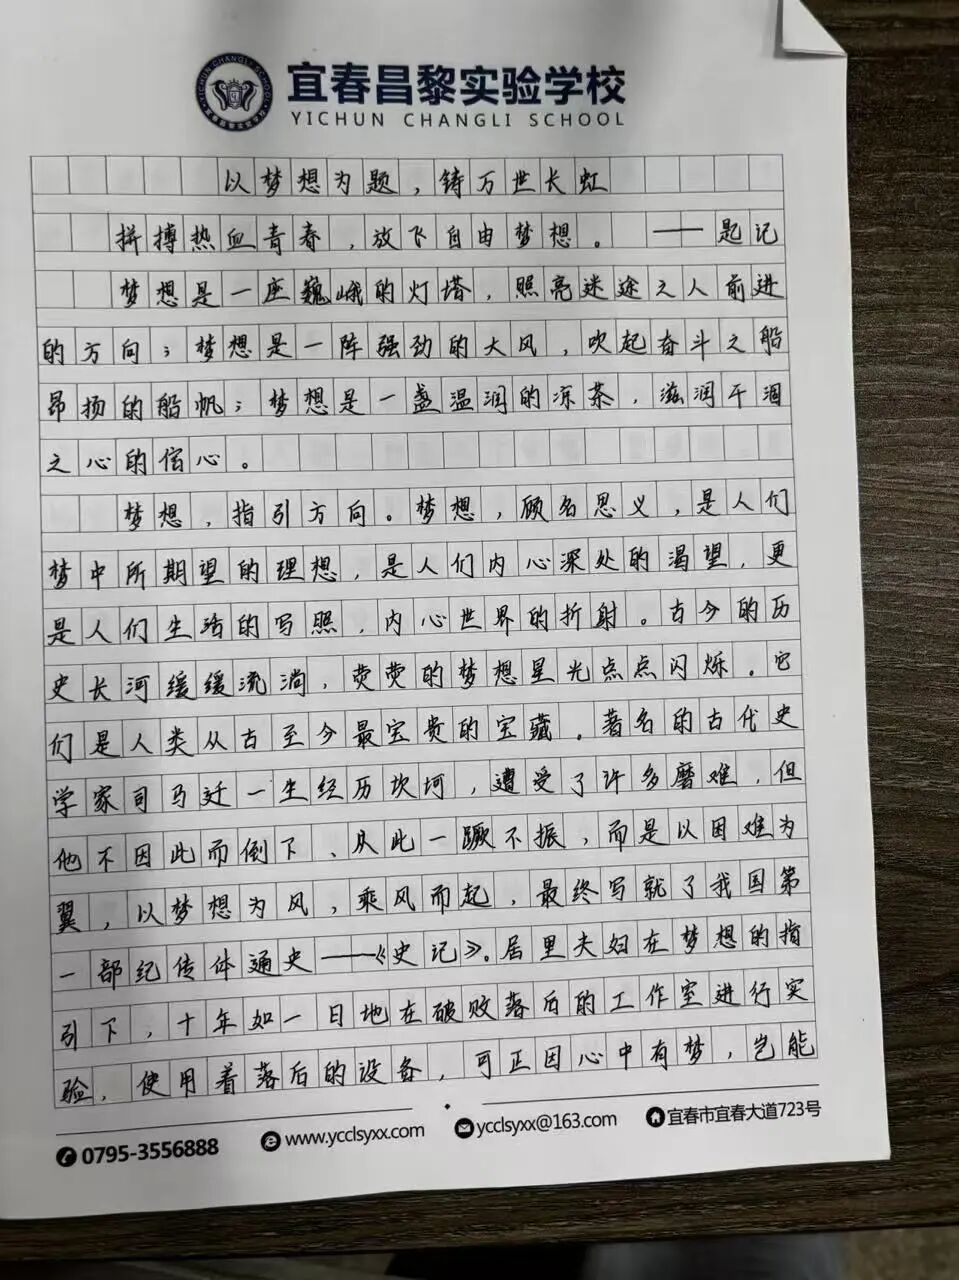 宜春昌黎实验学校
YICHUN CHANGLI SCHOOL
以梦想为题，铸万世长虹
拼搏热血青春，放飞自由梦想。——题记
梦想是一座巍峨的灯塔，照亮迷途之人前进
的方向；梦想是一阵强劲的大风，吹起奋斗之船
昂扬的船帆；梦想是一盏温润的凉茶，滋润干涸
之心的信心。
梦想，指引方向。梦想，顾名思义，是人们
梦中所期望的理想，是人们内心深处的渴望，更
是人们生活的写照，内心世界的折射。古今的历
史长河缓缓流淌，荧荧的梦想星光点点闪烁。它
们是人类从古至今最宝贵的宝藏。著名的古代史
学家司马迁一生经历坎坷，遭受了许多磨难，但
他不因此而倒下、从此一蹶不振，而是以困难为
翼，以梦想为风，乘风而起，最终写就了我国第
一部纪传体通史——《史记》。居里夫妇在梦想的指
引下，十年如一日地在破败落后的工作室进行实
验，使用着落后的设备，可正因心中有梦，岂能
0795-3556888
www.ycclsyxx.com
ycclsyxx@163.com
宜春市宜春大道723号